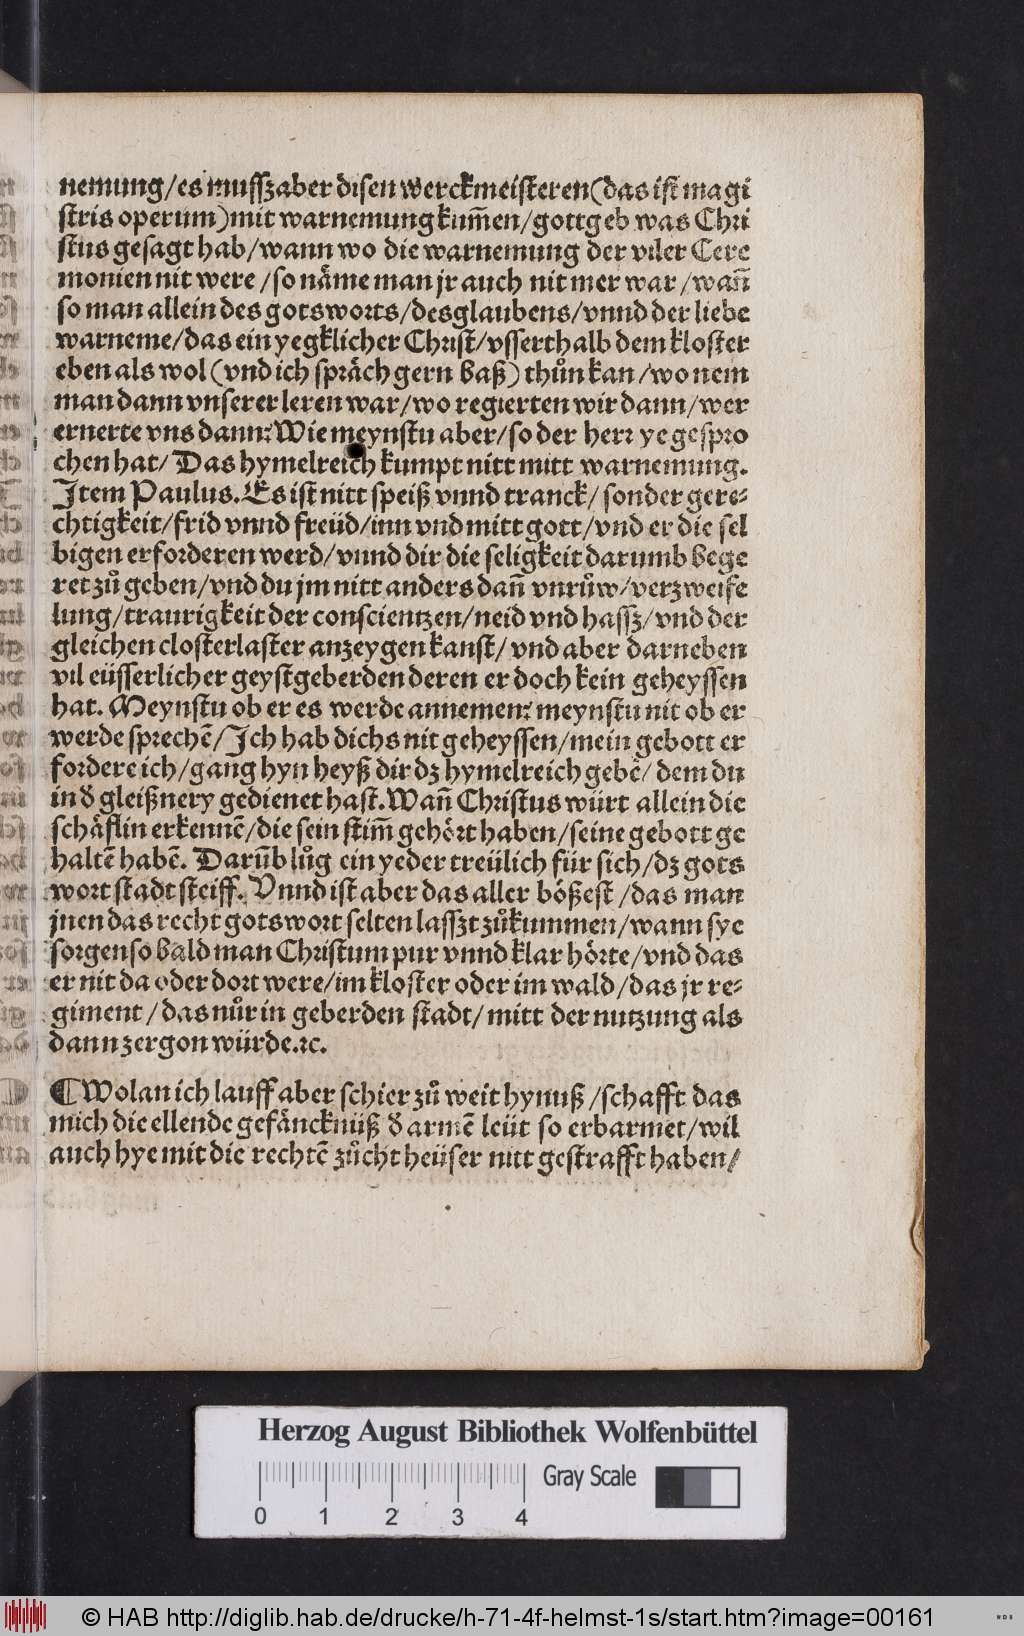 nemung/es mussz aber disen werckmeisteren(das ist magi
stris operum)mit warnemung kum̃en/gott geb was Chri
stus gesagt hab/wann wo die warnemung der viler Cere
monien nit were/so nåme man jr auch nit mer war/wañ
so man allein des gotsworts/des glaubens/vnnd der liebe
warneme/das ein yegklicher Christ/vsserthalb dem kloster
eben als wol(vnd ich språch gern baß)thůn kan/wo nem
man dann vnserer leren war/wo regierten wir dann/wer
ernerte vns dann? Wie meynstu aber/so der herr ye gespro
chen hat/ Das hymelreich kumpt nitt mitt warnemung.
Item Paulus. Es ist nitt speiß vnnd tranck/ sonder gere-
chtigkeit/frid vnnd freüd/inn vnd mitt gott/vnd er die sel
bigen erforderen werd/vnnd dir die seligkeit darumb bege
ret zů geben/vnd du jm nitt anders dañ vnrůw/verzweife
lung/traurigkeit der conscientzen/neid vnd hassz/vnd der
gleichen closterlaster anzeygen kanst/ vnd aber darneben
vil eüsserlicher geystgeberden deren er doch kein geheyssen
hat. Meynstu ob er es werde annemen? meynstu nit ob er
werde sprechẽ/Ich hab dichs nit geheyssen/mein gebott er
fordere ich/gang hyn heyß dir dz hymelreich gebẽ/ dem du
in đ gleißnery gedienet hast. Wañ Christus würt allein die
schåflin erkennẽ/die sein stim̃ gehört haben/seine gebott ge
haltẽ habẽ. Darũb lůg ein yeder treülich für sich/dz gots
wort stadt steiff. Vnnd ist aber das aller bößest/das man
jnen das recht gotswort selten lasszt zůkummen/wann sye
sorgen so bald man Christum pur vnnd klar hörte/vnd das
er nit da oder dort were/im kloster oder im wald/das jr re-
giment/das nůr in geberden stadt/mitt der nutzung als
dann zergon würde.ꝛc.
¶ Wolan ich lauff aber schier zů weit hynuß/schafft das
mich die ellende gefånckniiß đ armẽ leüt so erbarmet/wil
auch hye mit die rechtẽ zůcht heüser nitt gestrafft haben/
Herzog August Bibliothek Wolfenbüttel
Gray Scale
0 1 2 3 4
© HAB http://diglib.hab.de/drucke/h-71-4f-helmst-1s/start.htm?image=00161
WDB